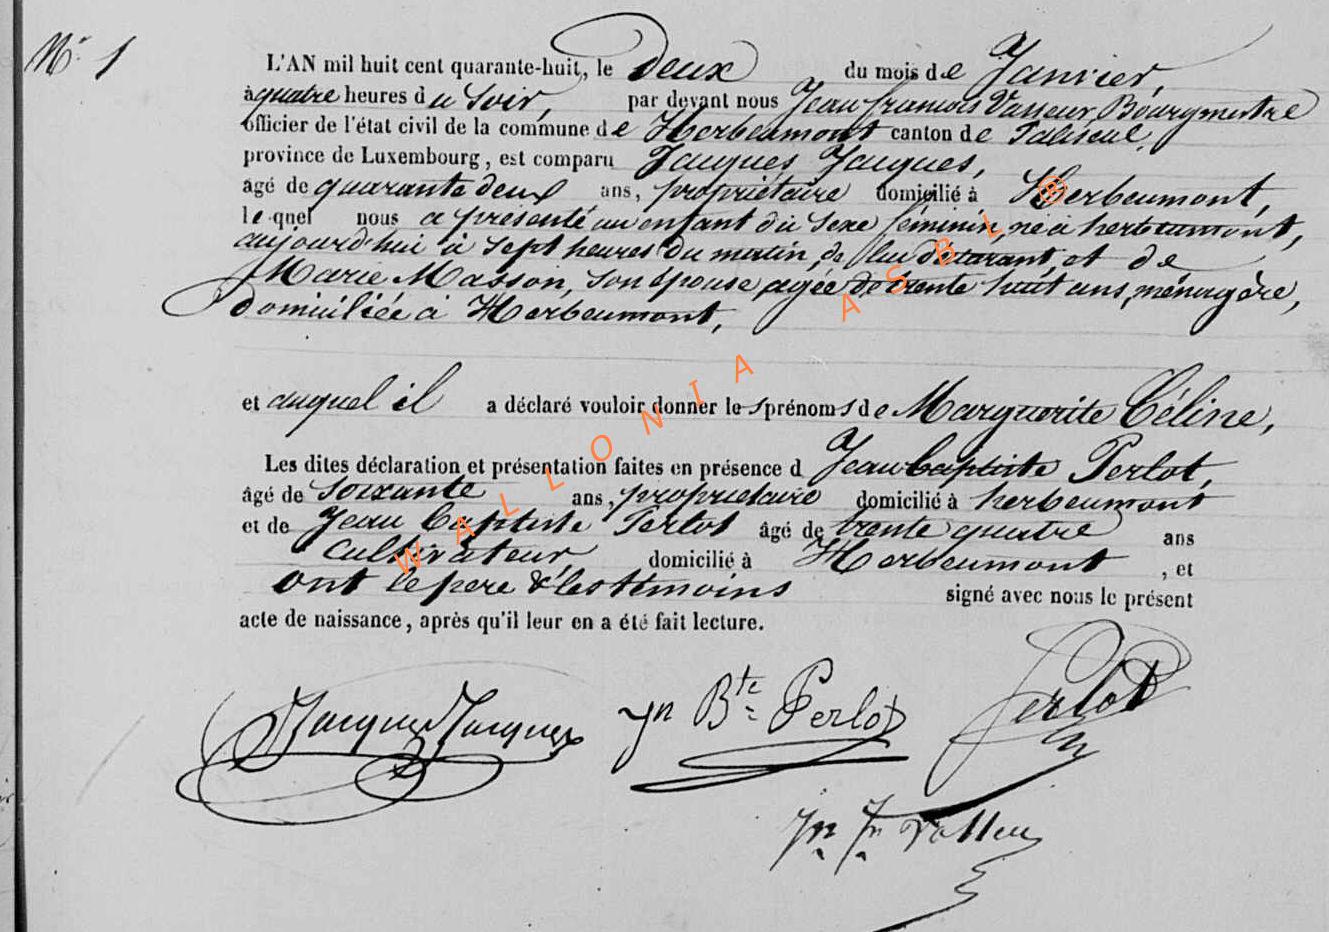 Nr. 1
L'AN mil huit cent quarante-huit, le Deux du mois de Janvier,
à quatre heures du Soir, par devant nous Jean françois Vasseur Bourgmestre
officier de l'état civil de la commune de Herbeumont canton de Paliseul,
province de Luxembourg, est comparu Jacques Jacques,
agé de quarante deux ans, propriétaire domicilié à Herbeumont,
lequel nous a présenté un enfant du sexe féminin, né à herbeumont,
aujourd'hui à sept heures du matin, de lui déclarant et de
Marie Masson, son épouse, agée de trente huit ans, ménagère,
domiciliée à Herbeumont,
et auquel il a déclaré vouloir donner les prénoms de Marguerite Céline,
Les dites déclaration et présentation faites en présence d Jean baptiste Perlot,
âgé de soixante ans, propriétaire domicilié à herbeumont
et de Jean baptiste Perlot âgé de trente quatre ans
cultivateur, domicilié à Herbeumont, et
ont le pere & les témoins signé avec nous le présent
acte de naissance, après qu'il leur en a été fait lecture.
Jacques Jacques Jn Bte Perlot Perlot
Jn Fn Vasseur
WALLONIA ASBL ®